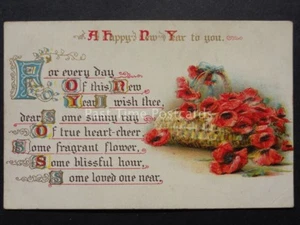 A Happy New Year to you.
For every day
Of this New
Year I wish thee,
dear, Some sunny ray
Of true heart-cheer,
Some fragrant flower,
Some blissful hour,
Some loved one near.